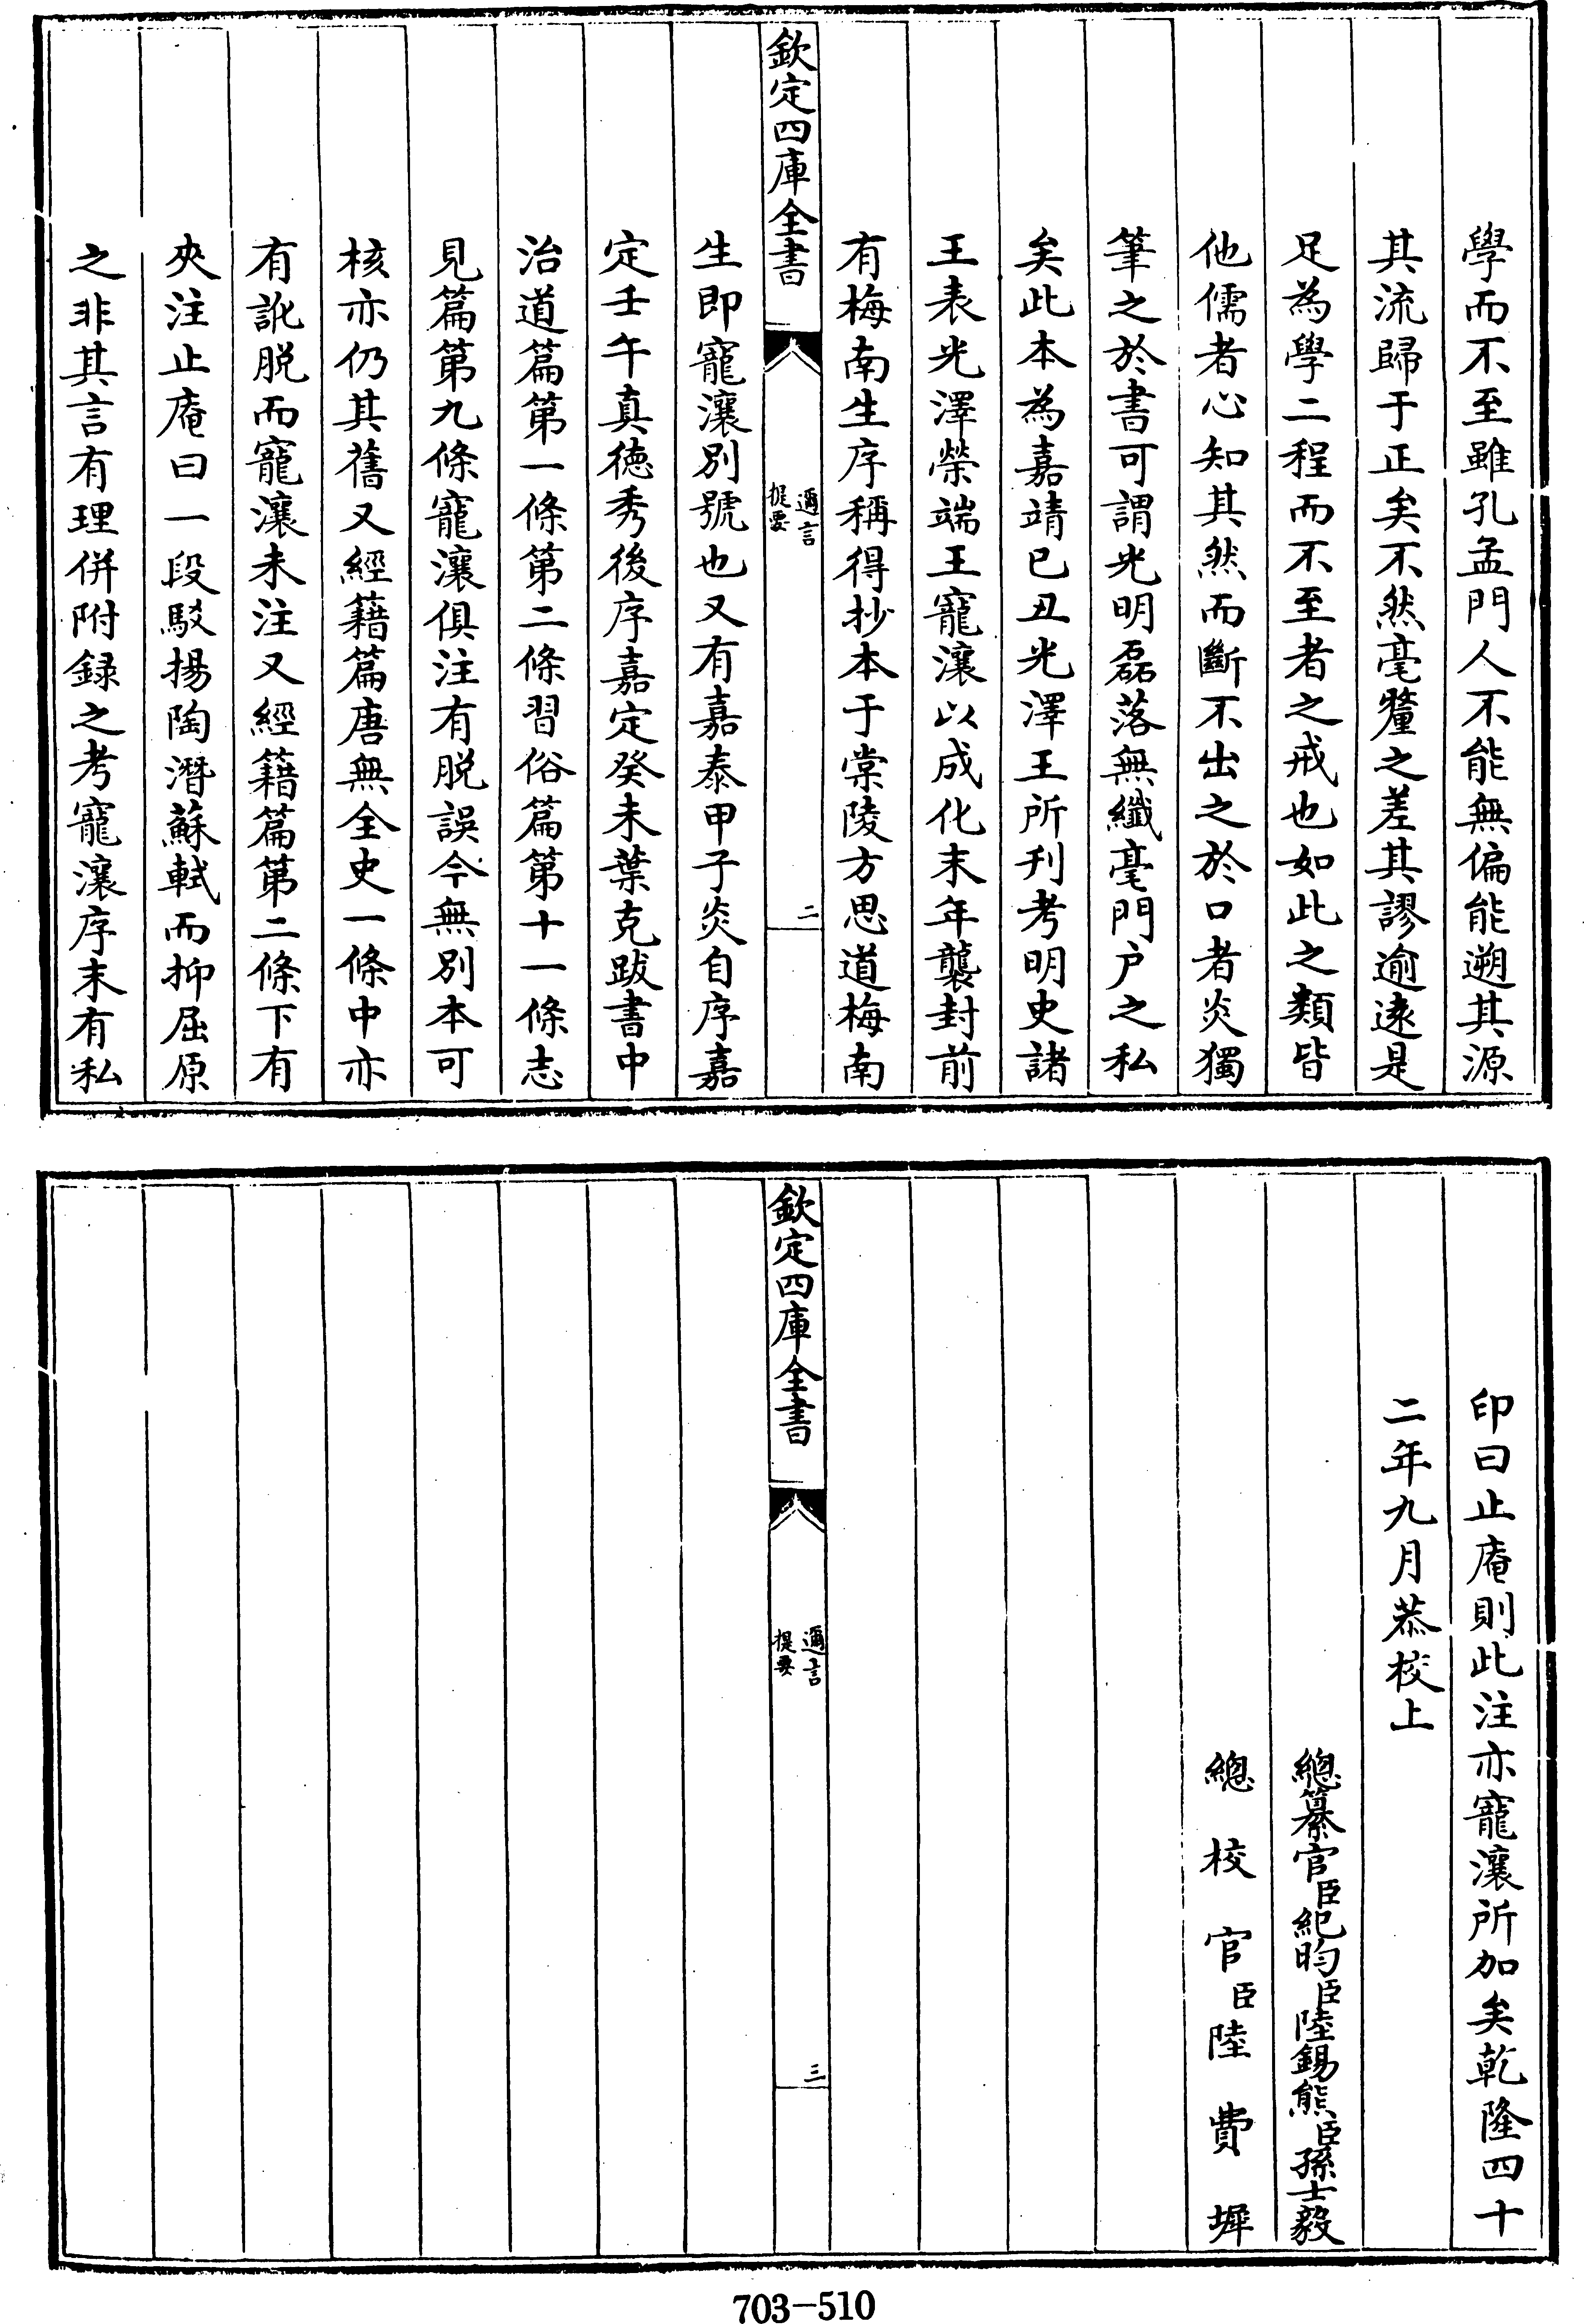 學而不至雖孔孟門人不能無偏能遡其源
其流歸于正矣不然毫釐之差其謬逾遠是
足為學二程而不至者之戒也如此之類皆
他儒者心知其然而斷不出之於口者炎獨
筆之於書可謂光明磊落無纖毫門户之私
矣此本為嘉靖已丑光澤王所刋考明史諸
王表光澤榮端王寵瀼以成化末年襲封前
有梅南生序稱得抄本于棠陵方思道梅南
欽定四庫全書
邇言
提要
二
生即寵瀼別號也又有嘉泰甲子炎自序嘉
定壬午真徳秀後序嘉定癸未葉克跋書中
治道篇第一條第二條習俗篇第十一條志
見篇第九條寵瀼俱注有脱誤今無別本可
核亦仍其舊又經籍篇唐無全史一條中亦
有訛脱而寵瀼未注又經籍篇第二條下有
夾注止庵曰一段駁揚陶潛蘇軾而抑屈原
之非其言有理併附録之考寵瀼序末有私
印曰止庵則此注亦寵瀼所加矣乾隆四十
二年九月恭校上
總纂官臣紀昀臣陸錫熊臣孫士毅
總校官臣陸費墀
欽定四庫全書
邇言
提要
三
703-510